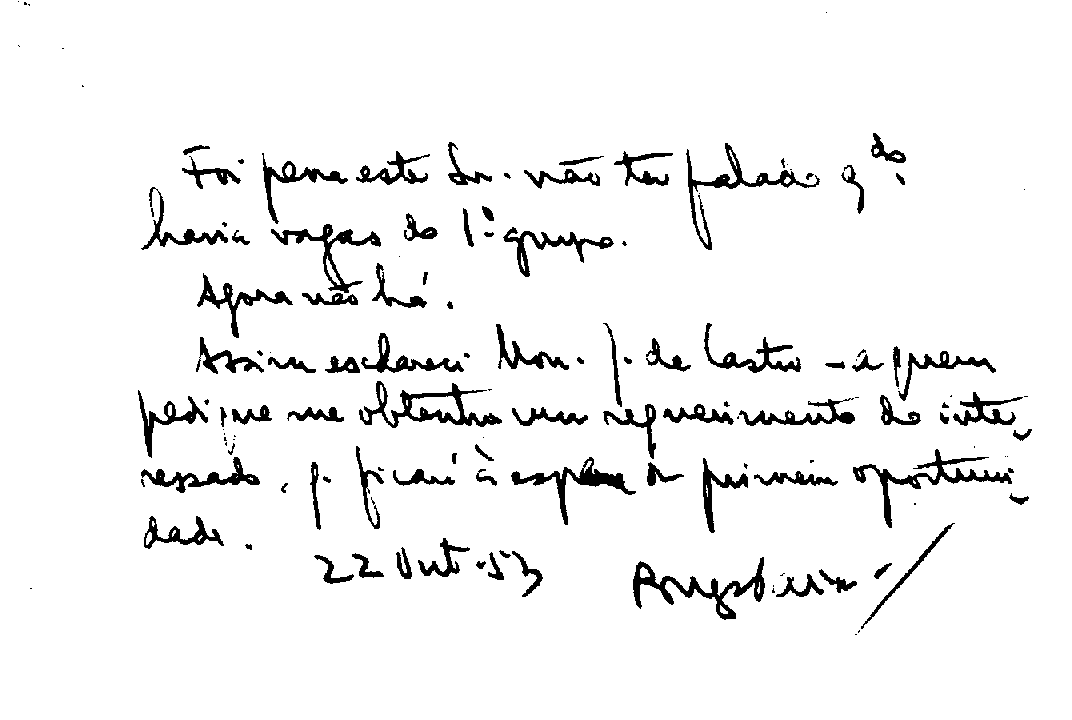 Foi pena este Sr. não ter falado qdo.
havia vagas do 1.º grupo.
Agora não há.
Assim esclareci Mon. J. de Castro - a quem
pedi que me obtenha um requerimento do inte-
ressado, q. ficará à espera da primeira oportuni-
dade.
22 Out. 53